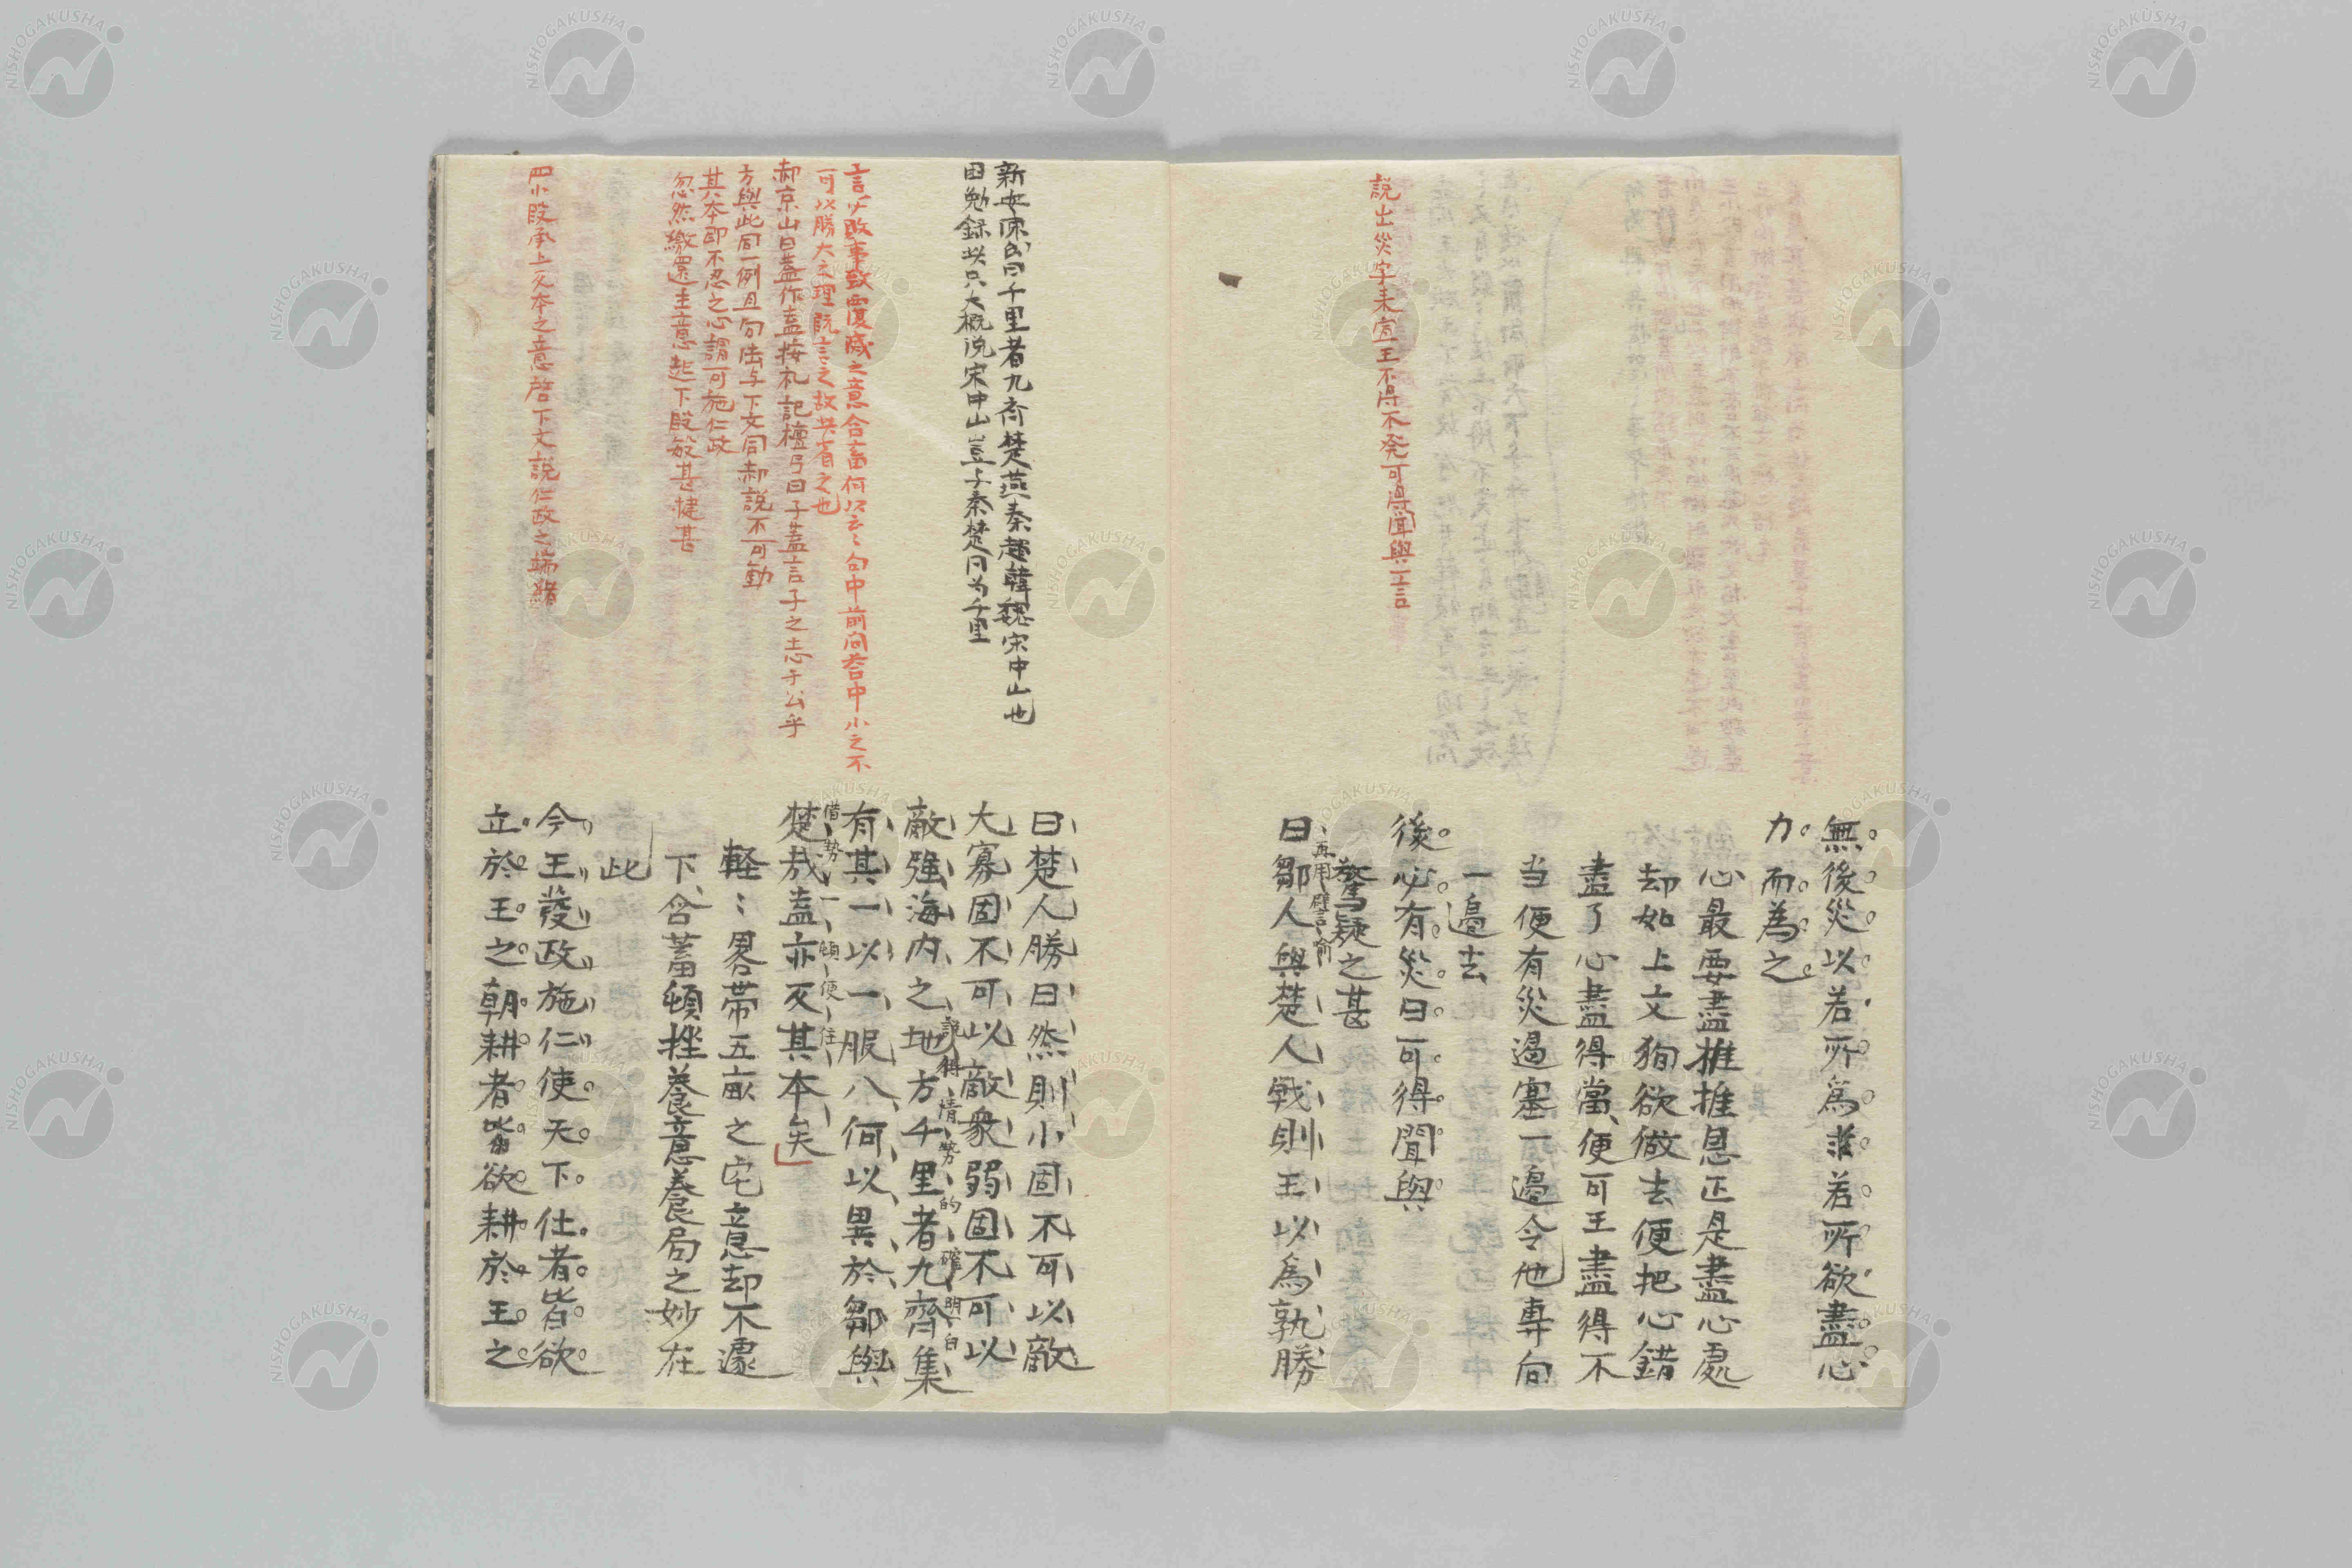 説出災字来宣王不得不発可得聞與一言
無後災以若所為求若所欲盡心
力而為之
心最要盡推推恩正是盡心處
却如上文狥欲做去便把心錯
盡了心盡得當便可王盡得不
当便有災過塞一邉令他專向
一邉去
後必有災曰可得聞與
驚疑之甚
再用譬喻
曰鄒人與楚人戰則王以為孰勝
新安陳氏曰千里者九斉楚燕秦趙韓魏宋中山也
困勉録此只大概説宋中山豈与秦楚同为千里
言必敗事致覆滅之意合畜何以云〻句中前问荅中小之不
可以勝大之理既言之故共有之也
郝京山曰蓋作盍按礼記檀弓曰子蓋言子之志于公乎
方與此同一例且句法与下文同郝説不可動
其本即不忍之心謂可施仁政
忽然繳還主意起下段敏甚健甚
四小段承上反本之意啓下文説仁政之端緒
曰楚人勝曰然則小固不可以敵
大寡固不可以敵衆弱固不可以
説得情勢的確明白
敵強海内之地方千里者九齊集
有其一以一服八何以異於鄒與
借勢一頓便住
楚㦲盖亦反其本矣
軽〻畧帯五畝之宅意却不遽
下含蓄頓挫養意養局之妙在
此
今王發政施仁使天下仕者皆欲
立於王之朝耕者皆欲耕於王之
NISHOGAKUSHA